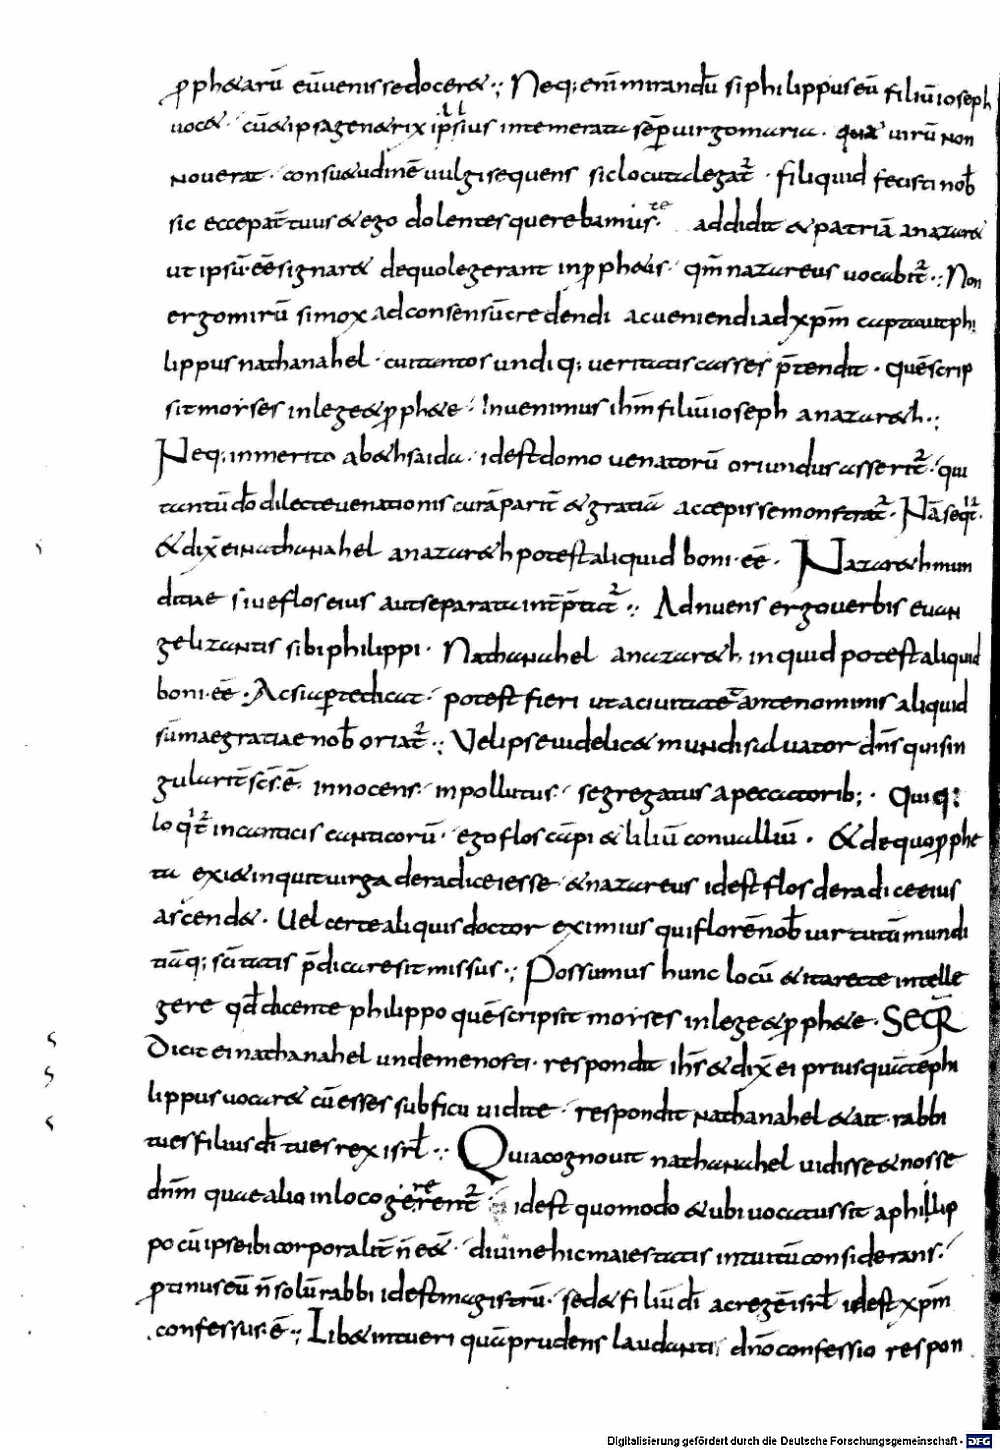 p̱ph&arū eūvenisse docer&·; Neq; enī mirandū si philippus eū filiū ioseph
voc&· cū& ipsa gen&rix ipsius intemerata sēp virgo maria· quae virū non
noverat· consu&udinē vulgi sequens sic locuta legat̄· fili quid fecisti nob̄
sic ecce pat̄ tuus & ego dolentes querebamus te· addidit & patriā a nazar&
ut ipsū·eē signar& de quo legerant in p̱ph&is· qm̄ nazareus vocabit̄·; Non
ergo mirū si mox ad consensū credendi ac veniendi ad xp̄m captavit phi
lippus nathanahel· cui tantos undiq; veritatis casses p̄tendit· quē scrip
sit moyses in lege & p̱ph&e· Invenimus ih̄m filiū ioseph a nazar&h·;
Neq; inmerito a b&hsaida· id est domo venatorū oriundus asserit̄· qui
tantū dō dilecte venationis curā parit̄ & gratiā accepisse monstrat̄· Nā seqt̄·
& dix̄ ei nathanahel a nazar&h potest aliquid boni·eē· Nazar&h mun
ditiae sive flos eius aut separata int̄p̄tat̄·; Adnuens ergo verbis evan
gelizantis sibi philippi· Nathanahel a nazar&h inquid potest aliquid
boni·eē· Ac si ap̱te dicat· potest fieri ut a civitate tante nominis aliquid
sūmae gratiae nob̄ oriat̄·; Vel ipse videlic& mundi salvator dn̄s qui sin
gularit̄ sc̄s·ē· innocens· inpollutus· segregatus a peccatorib;· Qui q;
loqt̄ in canticis canticorū· ego flos cāpi & liliū convalliū· & de quo p̱phe
ta exi& inquit virga de radice iesse & nazareus id est flos de radice eius
ascend&· Vel certe aliquis doctor eximius qui florē nob̄ virtutū mundi
tiāq; sc̄itatis p̄dicare sit missus·; Possumus hunc locū & ita recte intelle
gere qd̄ dicente philippo quē scripsit moyses in lege & p̱ph&e· SeqR̄
Dicit ei nathanahel unde me nosti· respondit ih̄s & dix̄ ei priusquā tē phi
lippus vocar& cū esses sub ficu vidi te· respondit nathanahel & ait· rabbi
tu es filius dī tu es rex isrl̄·; Quia cognovit nathanahel vidisse & nosse
dn̄m quae alio in loco gererent̄· id est quomodo & ubi vocatus sit a philip
po cū ipse ibi corporalit̄ n̄ e&· divine hic maiestatis intuitū considerans·
p̱tinus eū n̄ solū rabbi id est magistrū· sed & filiū dī ac regē isrl̄ id est xp̄m
confessus·ē·; Lib& intueri quā prudens laudanti dn̄o confessio respon
Digitalisierung gefördert durch die Deutsche Forschungsgemeinschaft - DFG